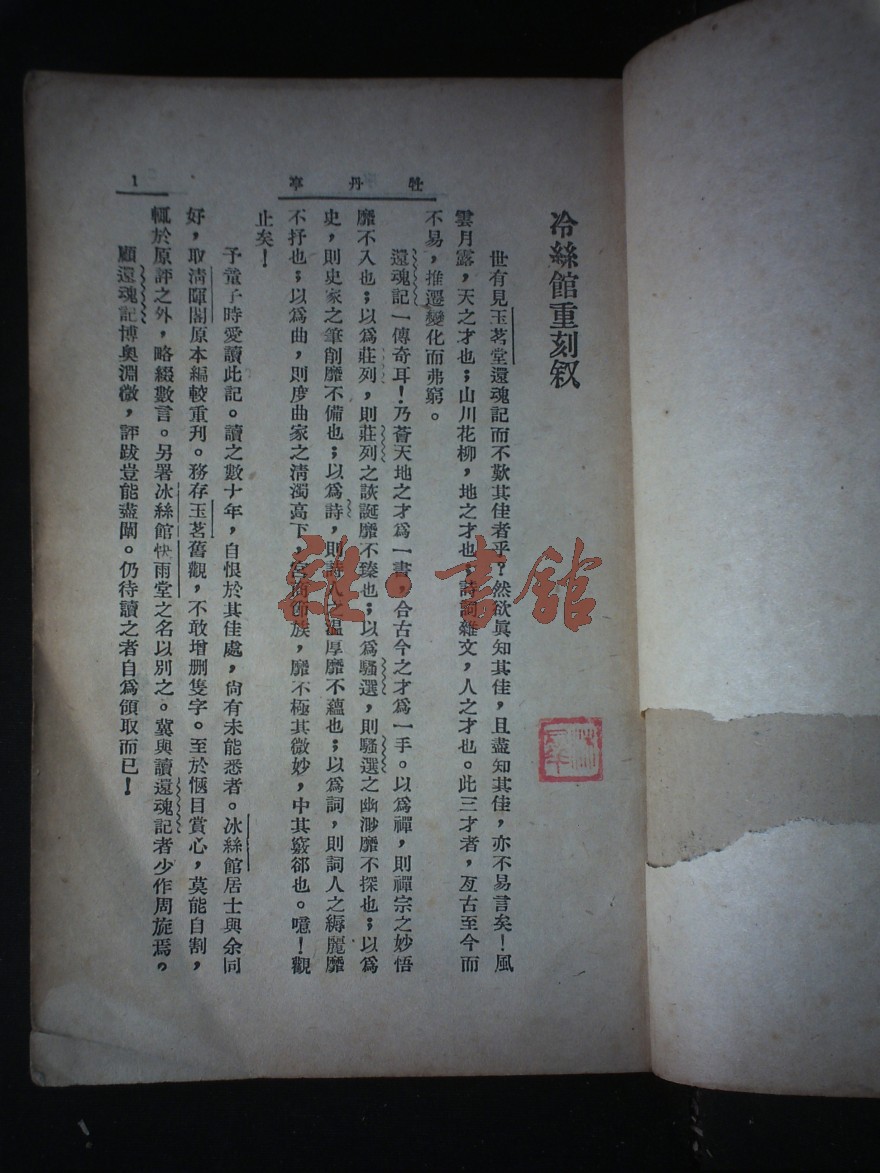 冷絲館重刻叙
世有見玉茗堂還魂記而不歎其佳者乎？然欲眞知其佳，且盡知其佳，亦不易言矣！風
雲月露，天之才也；山川花柳，地之才也；詩詞雜文，人之才也。此三才者，亙古至今而
不易，推遷變化而弗窮。
還魂記一傳奇耳！乃薈天地之才爲一書，合古今之才爲一手。以爲禪，則禪宗之妙悟
靡不入也；以爲莊列，則莊列之詼誕靡不臻也；以爲騷選，則騷選之幽渺靡不探也；以爲
史，則史家之筆削靡不備也；以爲詩，則詩人之温厚靡不蘊也；以爲詞，則詞人之縟麗靡
不抒也；以爲曲，則度曲家之清濁高下，宮商節族，靡不極其微妙，中其窾郤也。噫！觀
止矣！
予童子時愛讀此記。讀之數十年，自恨於其佳處，尙有未能悉者。冰絲館居士與余同
好，取淸暉閣原本編較重刋。務存玉茗舊觀，不敢增删隻字。至於愜目賞心，莫能自割，
輒於原評之外，略綴數言。另署冰絲館快雨堂之名以別之。冀與讀還魂記者少作周旋焉。
顧還魂記博奧淵微，評跋豈能盡闡。仍待讀之者自爲領取而已！
牡丹亭
1
雜·書館